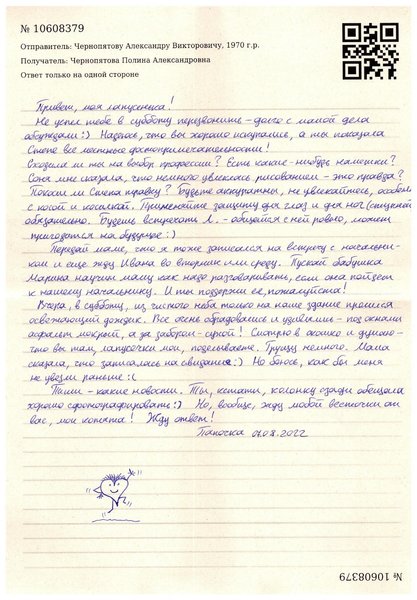 № 10608379
Отправитель: Чернопятову Александру Викторовичу, 1970 г.р.
Получатель: Чернопятова Полина Александровна
Ответ только на одной стороне
Привет, моя лапусенька!
Не успел тебе в субботу перезвонить - долго с мамой дела
обсуждали :) Надеюсь, что вы хорошо искупались, а ты показала
Степе все местные достопримечательности!
Сходила ли ты на выбор профессии? Есть какие-нибудь намётки?
Соня мне сказала, что немного увлеклась рисованием - это правда?
Покосил ли Степа травку? Будьте аккуратны, не увлекайтесь, особенно
с косой и косилкой. Применяйте защиту для глаз и для ног
обязательно. Будешь встречать Л. - общайся с ней ровно, может
пригодиться на будущее :)
Передай маме, что я тоже записался на встречу с начальни-
ком и еще жду Ивана во вторник или среду. Пускай бабушка
Марина научит маму как надо разговаривать, если она пойдет
к нашему начальнику. И ты поддержи ее, пожалуйста!
Вчера, в субботу, из чистого неба только на наше здание пролился
освежающий дождик. Все очень обрадовались и удивились - под окнами
асфальт мокрый, а за забором - сухой! Смотрю в окошко и думаю -
что вы там, лапусечки мои, поделываете. Грущу немного. Мама
сказала, что записалась на свидание :) Но боюсь, как бы меня
не увезли раньше :(
Пиши - какие новости. Ты, кстати, колонку сзади обещала
хорошо сфотографировать :) Но, вообще, жду любой весточки от
вас, мои котята! Жду ответ!
Папочка 07.08.2022
№ 10608379